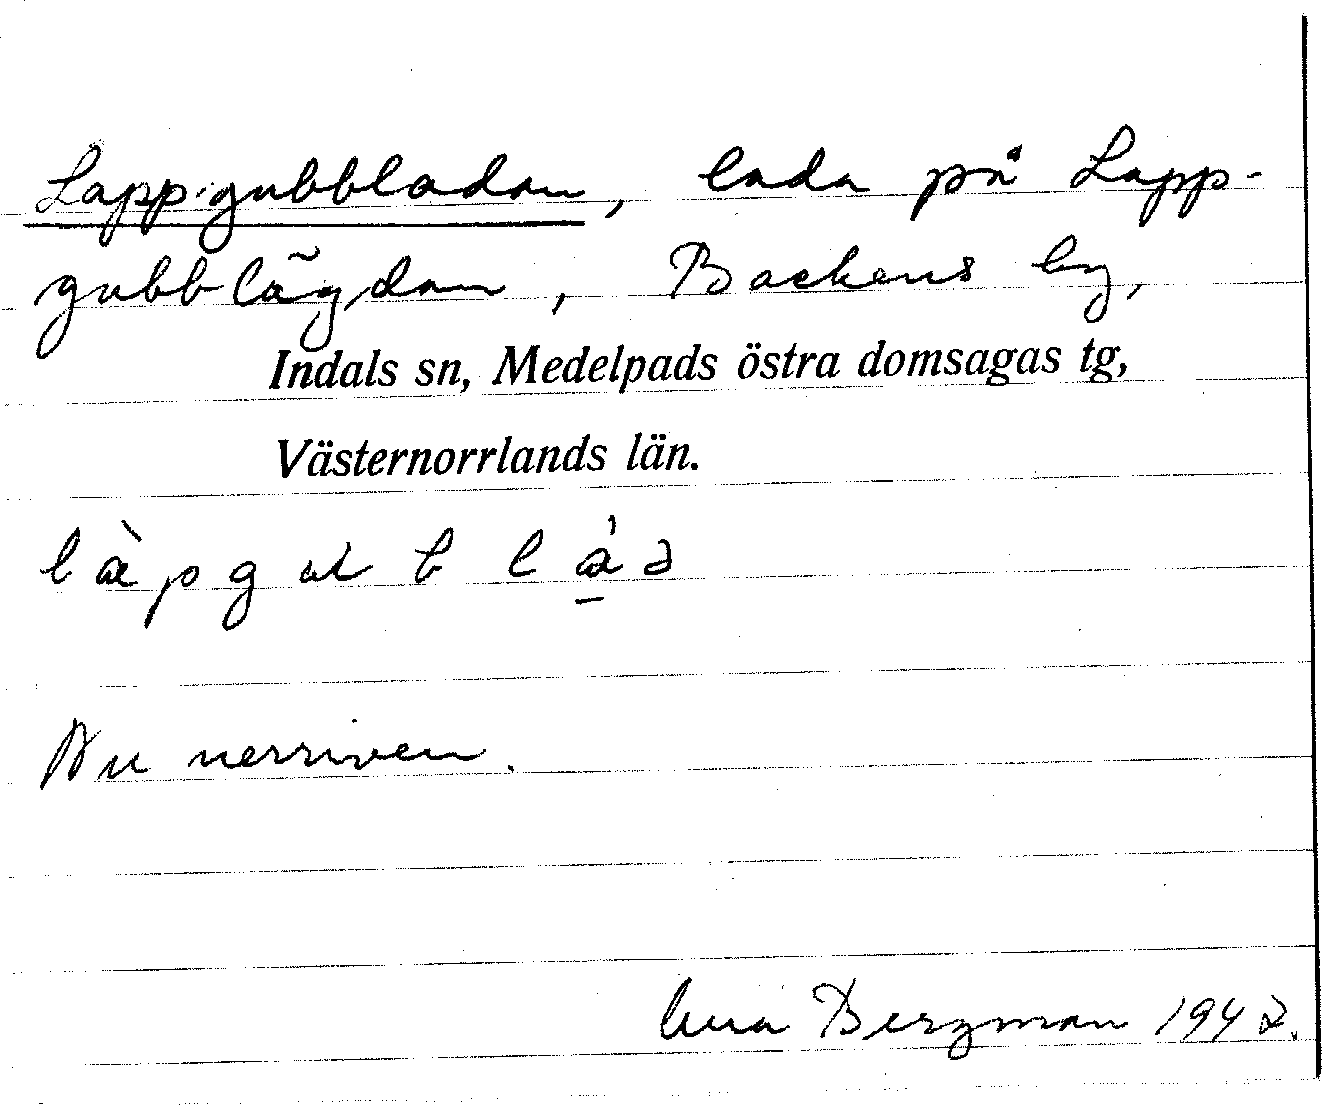 Lappgubbladan, lada på Lapp-
gubblägdan, Backens by,
Indals sn, Medelpads östra domsagas tg,
Västernorrlands län.
Nu nerriven.
Bergman 1942.